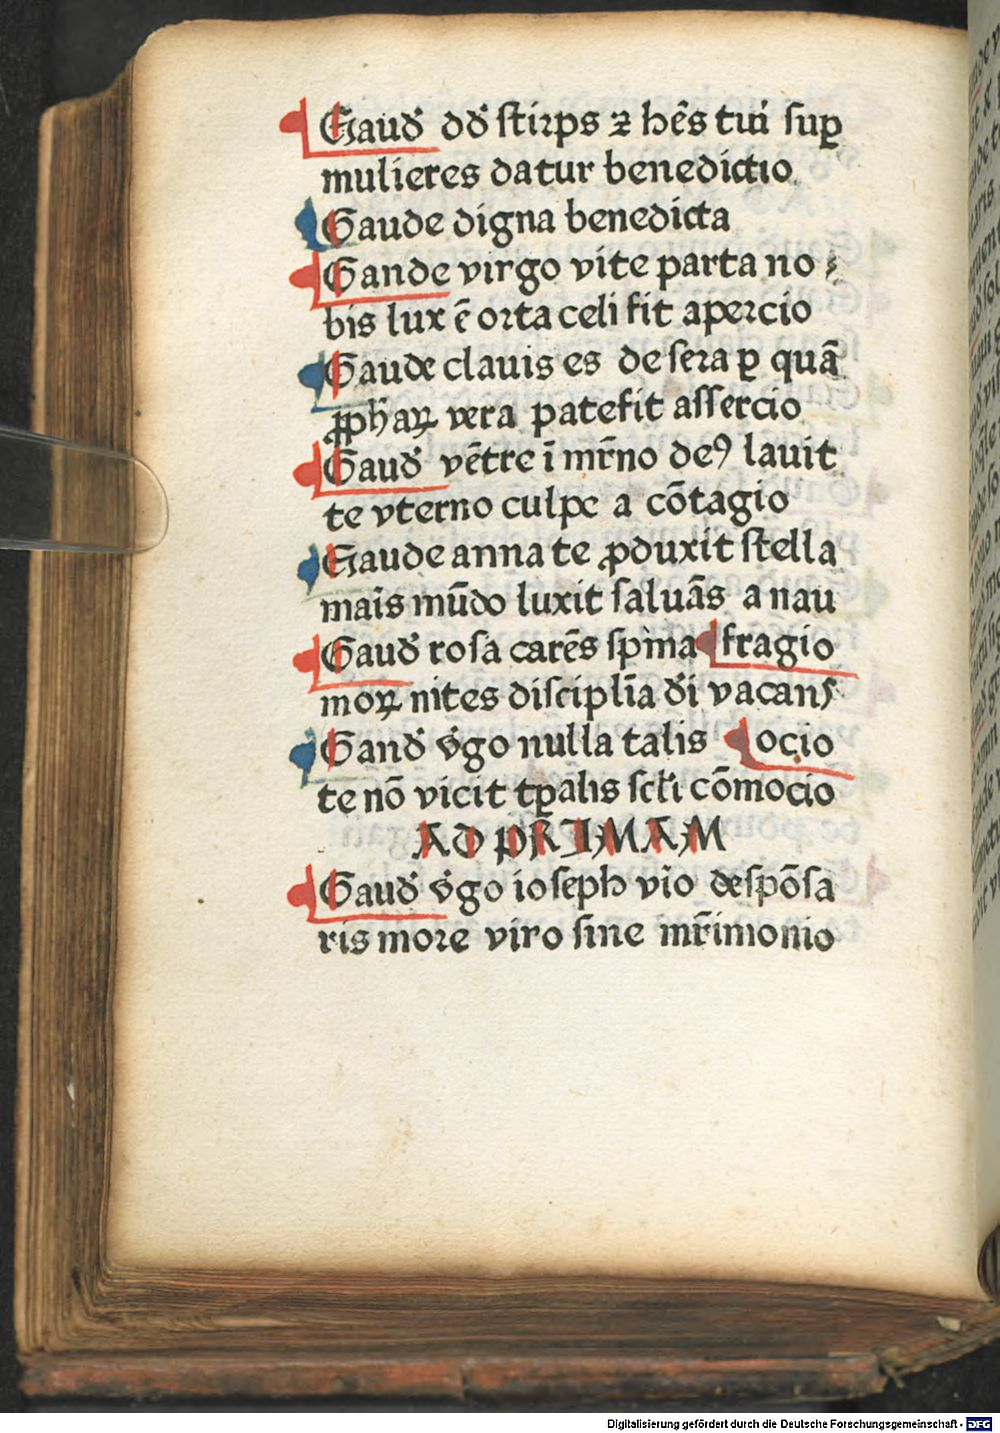 Gaud̛ dd̛ stirps ⁊ hēs tui sup̲
mulieres datur benedictio
Gaude digna benedicta
Gaude virgo vite parta no
bis lux ē orta celi fit apercio
Gaude clauis es desera ꝑ quā
ꝓphaꝝ vera patefit assercio
Gaud̛ vētre ī mr̄no deꝰ lauit
te vterno culpe a cōtagio
Gaude anna te ꝓduxit stella
mais mūdo luxit saluās a nau
Gaud̛ rosa carēs spina fragio
moꝝ nites disciplīa d̛i vacans
Gaud̛ v̛go nulla talis ocio
te nō vicit tꝑalis scl̄i cōmocio
AD PRIMAM
Gaud̛ v̛go ioseph vīo despōsa
ris more viro sine mr̄imonio
Digitalisierung gefördert durch die Deutsche Forschungsgemeinschaft - DFG